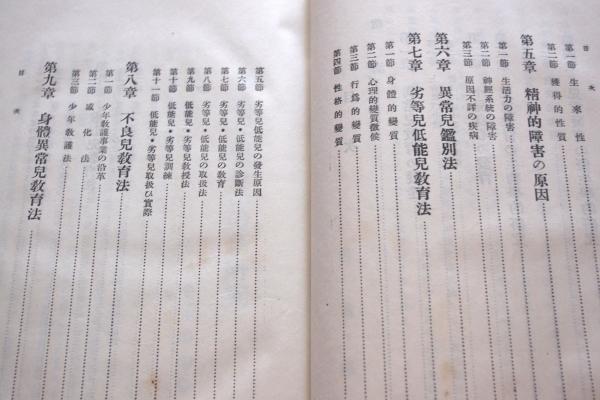 目次
第一節 生来性
第二節 獲得的性質
第五章 精神的障害の原因
第一節 生活力の障害
第二節 神經系統の障害
第三節 原因不詳の疾病
第六章 異常兒鑑別法
第七章 劣等兒低能兒教育法
第一節 身體的變質
第二節 心理的變質徵候
第三節 行爲的變質
第四節 性格的變質
第五節 劣等兒低能兒の發生原因
第六節 劣等兒・低能兒の診斷法
第七節 劣等兒・低能兒の教育
第八節 劣等兒・低能兒の取扱法
第九節 低能兒・劣等兒教授法
第十節 低能兒・劣等兒訓練
第十一節 低能兒・劣等兒取扱ひ實際
第八章 不良兒教育法
第一節 少年教護事業の沿革
第二節 感化法
第三節 少年教護法
第九章 身體異常兒教育法
目次